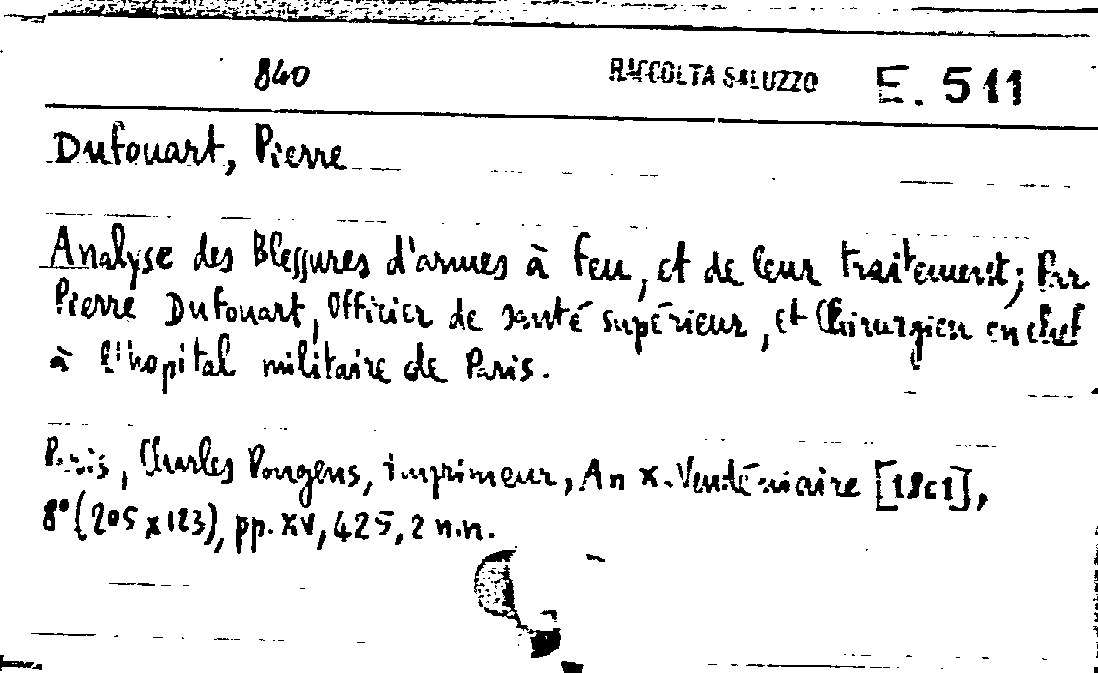 840 RACCOLTA SALUZZO E. 511
Dufouart, Pierre
Analyse des Blessures d'armes à feu, et de leur traitement; Par
Pierre Dufouart, Officier de santé supérieur, et Chirurgien en chef
à l'hopital militaire de Paris.
Paris, Charles Pougens, imprimeur, An X. Vendémiaire [1801],
8° (205 x 123), pp. XV, 425, 2 n.n.